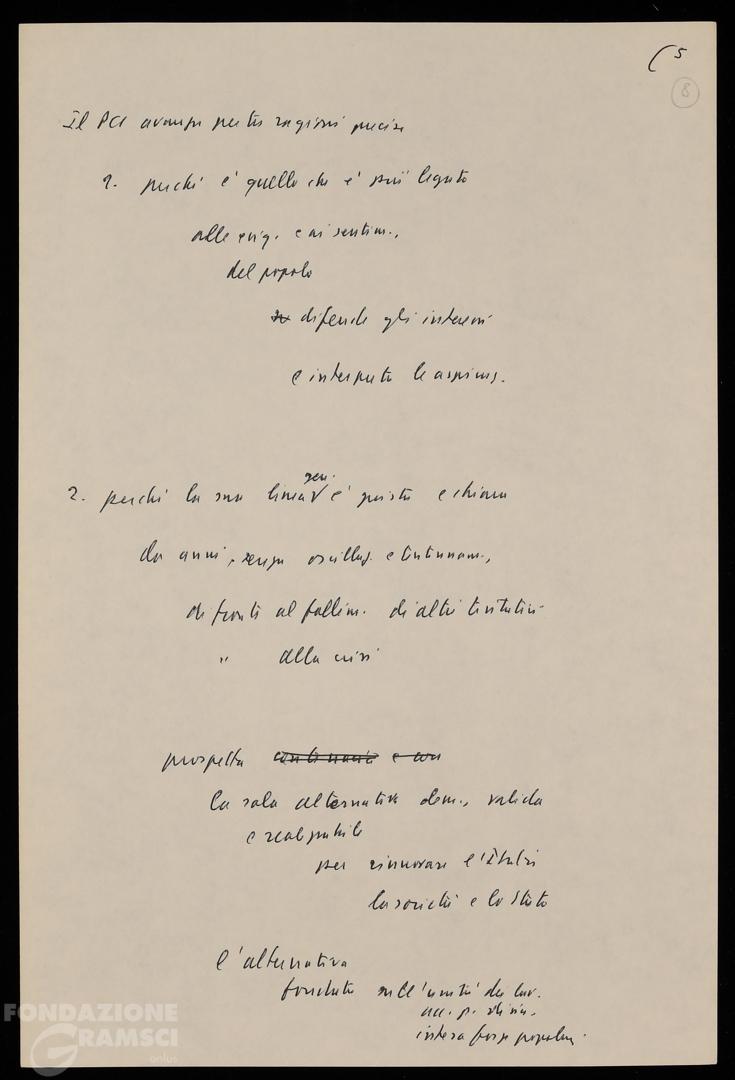 (5
8
Il PCI avanza per tre ragioni precise
1. perché è quello che è più legato
alle esig. e ai sentim.,
del popolo
difende gli interessi
e interpreta le aspiraz.
gen.
2. perché la sua linea è giusta e chiara
da anni, senza oscillaz. e tentennam.,
di fronte al fallim. di altri tentativi
" alla crisi
prospetta continuità e con
la sola alternativa dem., valida
e realizzabile
per rinnovare l'Italia
la società e lo Stato
l'alternativa
fondata sull'unità dei lav.
intesa forze popolari.
FONDAZIONE
GRAMSCI
onlus